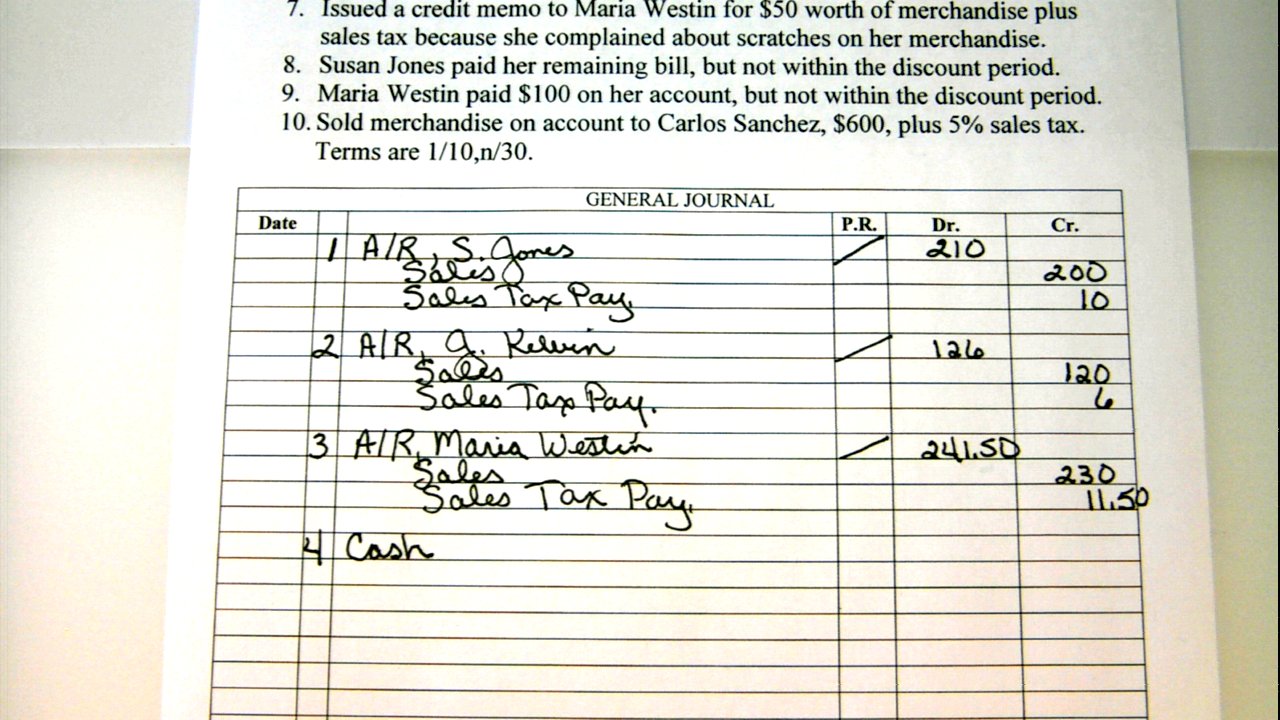 7. Issued a credit memo to Maria Westin for $50 worth of merchandise plus
sales tax because she complained about scratches on her merchandise.
8. Susan Jones paid her remaining bill, but not within the discount period.
9. Maria Westin paid $100 on her account, but not within the discount period.
10. Sold merchandise on account to Carlos Sanchez, $600, plus 5% sales tax.
Terms are 1/10,n/30.
GENERAL JOURNAL
Date P.R. Dr. Cr.
1 A/R, S. Jones 210
Sales 200
Sales Tax Pay. 10
2 A/R, J. Kelvin 126
Sales 120
Sales Tax Pay. 6
3 A/R, Maria Westin 241.50
Sales 230
Sales Tax Pay. 11.50
4 Cash